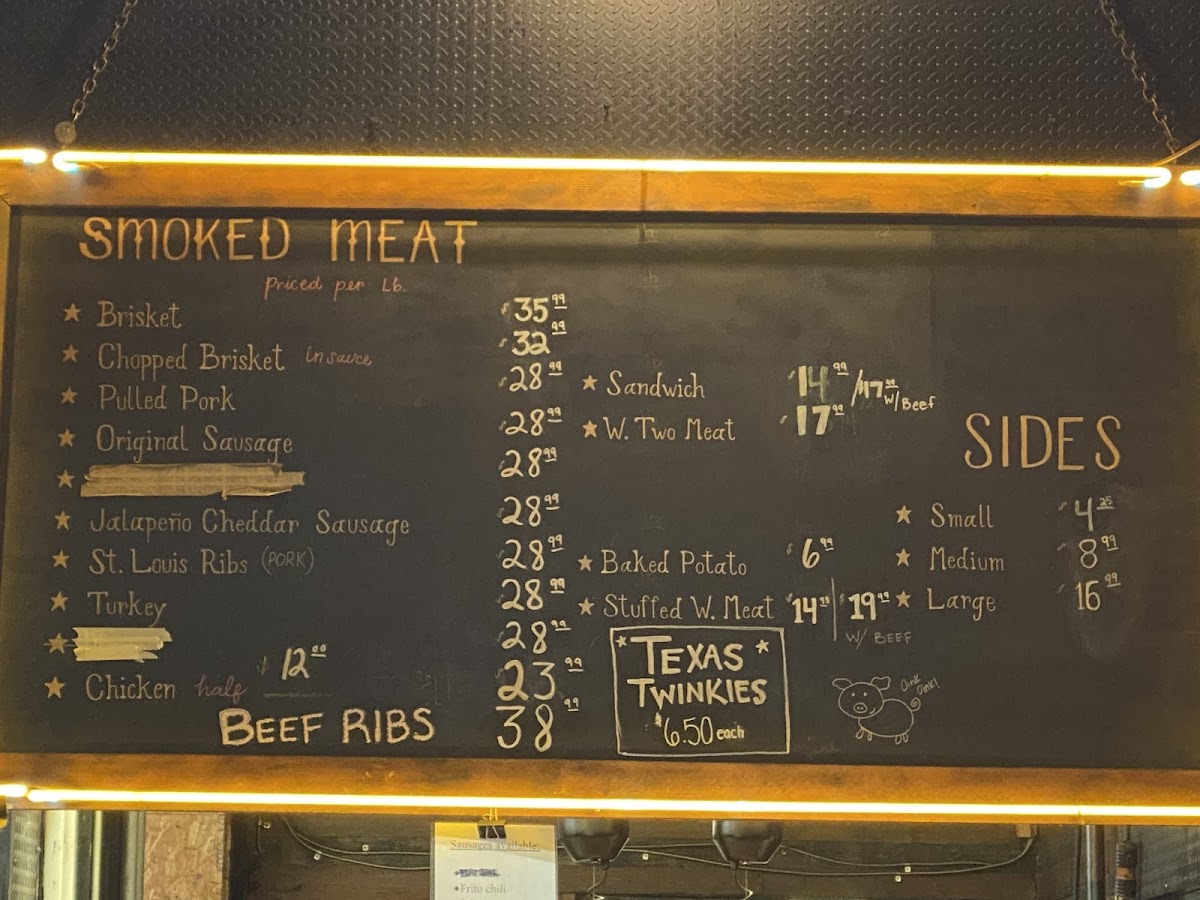 SMOKED MEAT
Priced per Lb.
Brisket $35.99
Chopped Brisket in sauce $32.99
Pulled Pork $28.99
Original Sausage $28.99
$28.99
Jalapeño Cheddar Sausage $28.99
St. Louis Ribs (PORK) $28.99
Turkey $28.99
$28.99
Chicken half $12.00 23.99
BEEF RIBS 38.99
Sandwich $14.99 / $17.99 w/ Beef
W. Two Meat $17.99
Baked Potato $6.99
Stuffed W. Meat $14.99 | $19.99
W/ BEEF
TEXAS
TWINKIES
$6.50 each
SIDES
Small $4.25
Medium $8.99
Large $16.99
Oink
Oink!
Sausages available:
•Frito chili